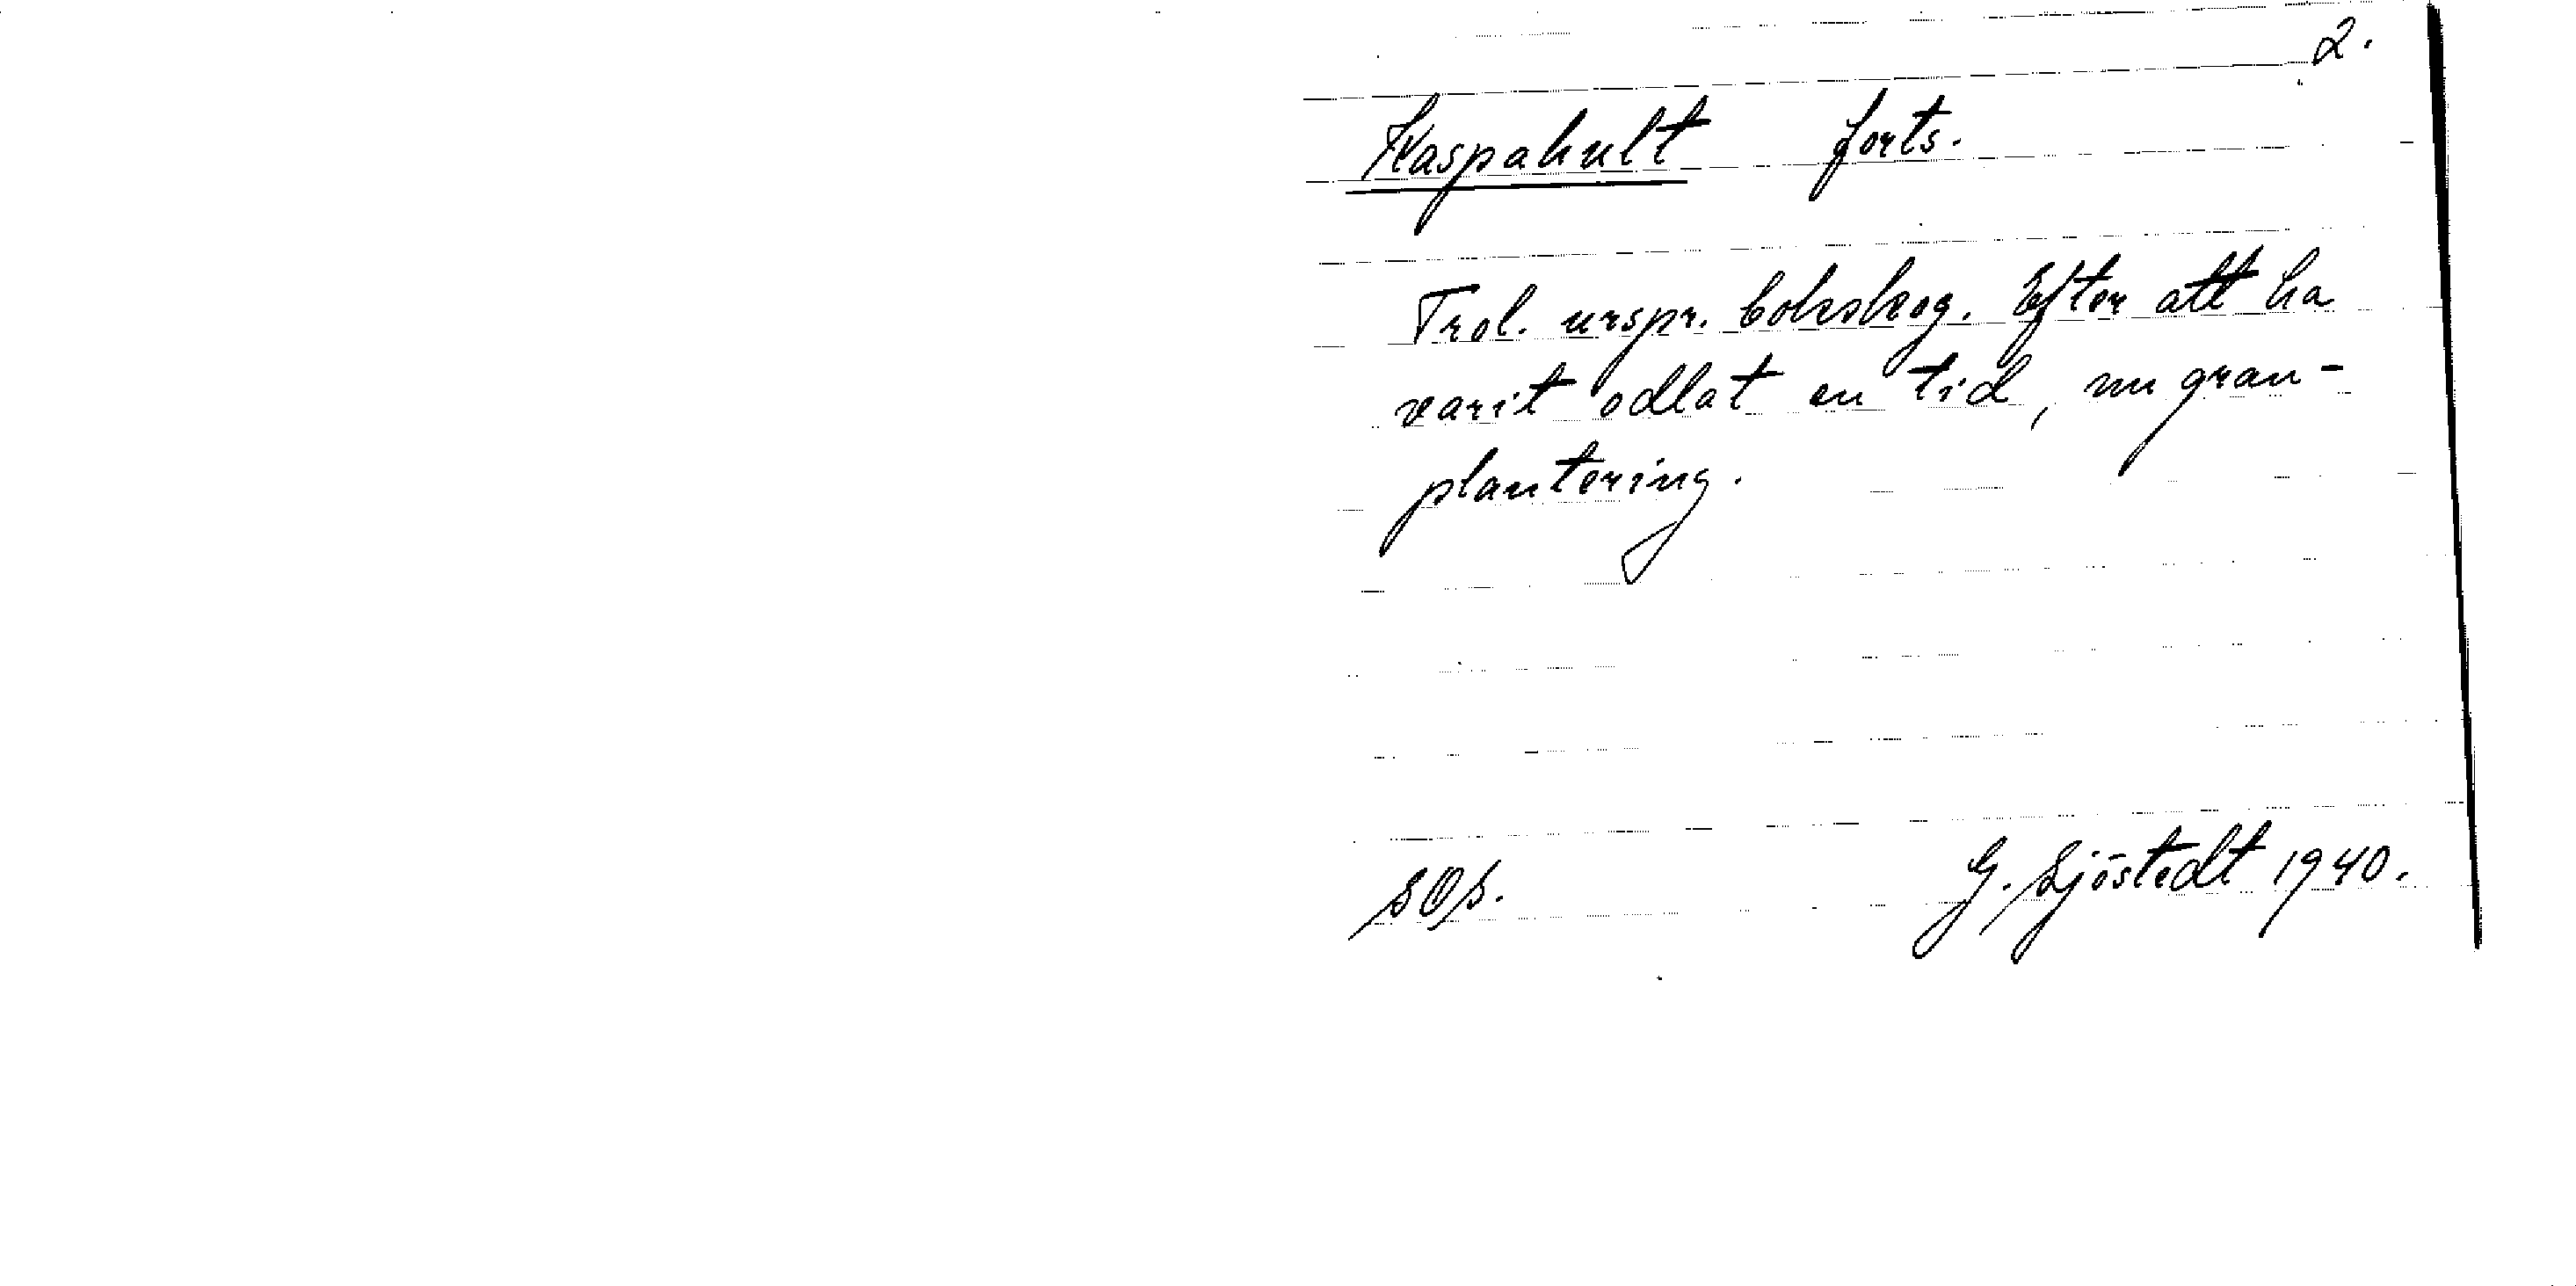 2.
Kaspahult forts.
Trol. urspr. bokskog. Efter att ha
varit odlat en tid, nu gran-
plantering.
SOS. G. Sjöstedt 1940.